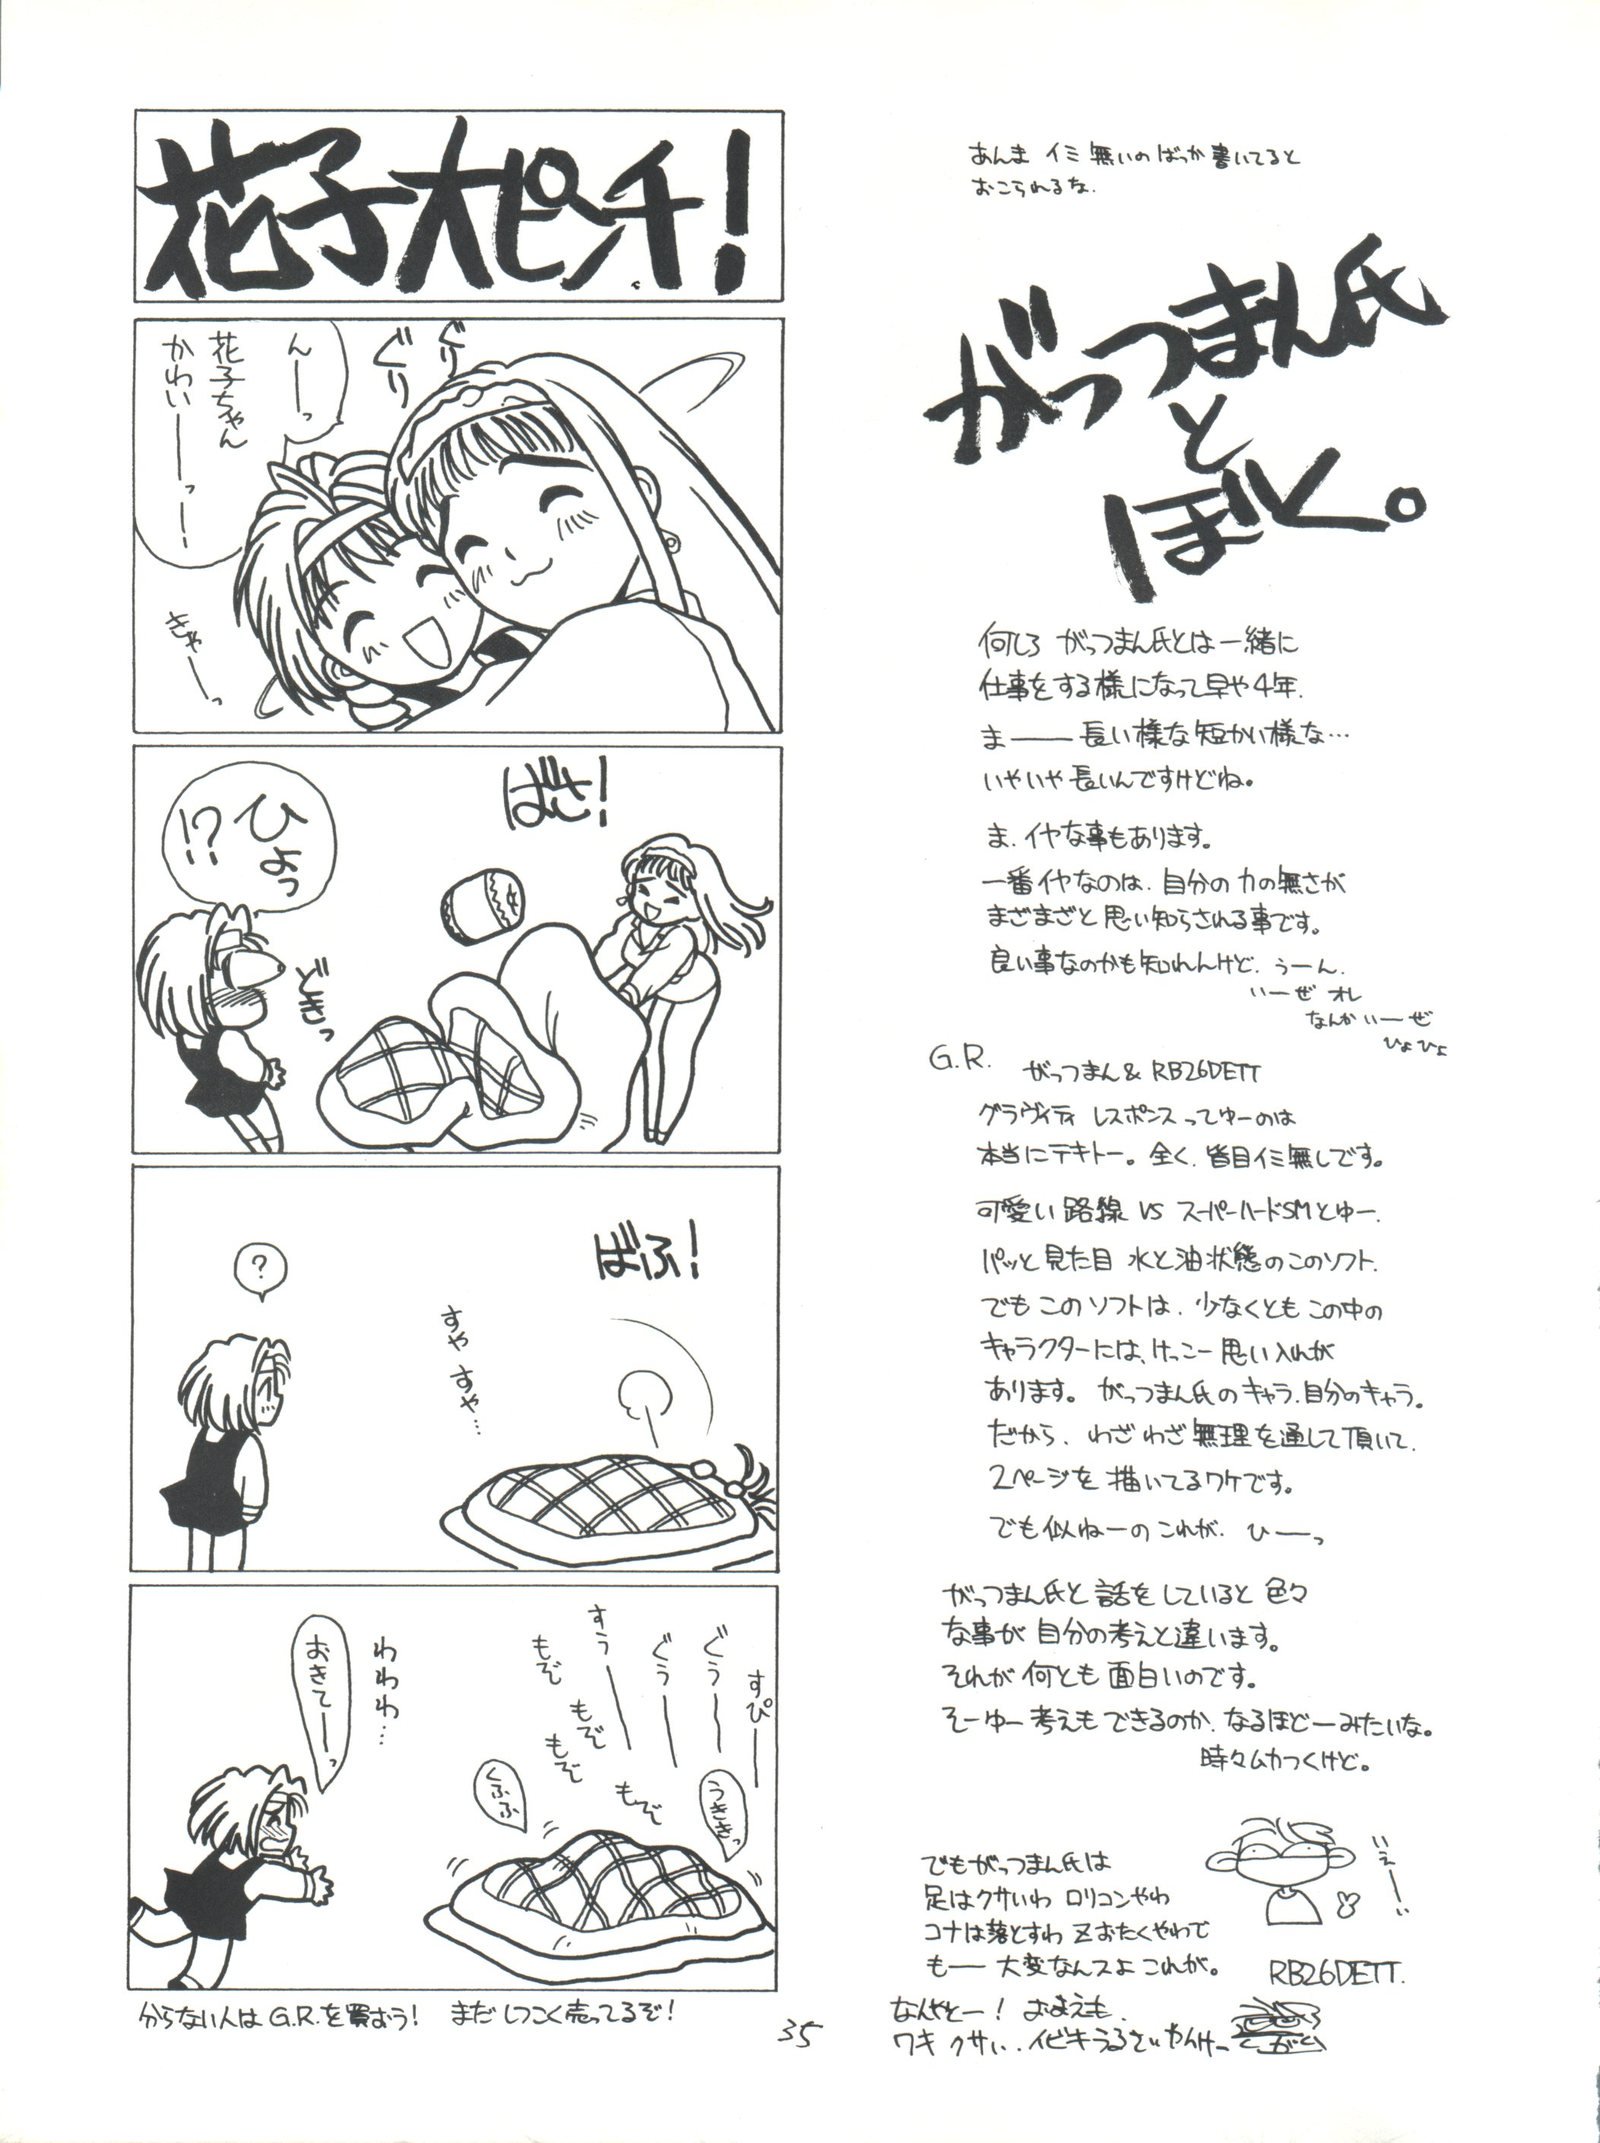 あんま イミ 無いのばっか書いてると
おこられるな.
がっつまん氏
と
ぼく。
何しろ がっつまん氏とは一緒に
仕事をする様になって早や4年.
ま――― 長い様な短かい様な…
いやいや長いんですけどね。
ま.イヤな事もあります。
一番イヤなのは.自分の力の無さが
まざまざと思い知らされる事です。
良い事なのかも知れんけど.うーん.
いーぜ オレ
なんか いーぜ
ひょひょ
G.R. がっつまん& RB26DETT
グラヴィティ レスポンスってゆーのは
本当にテキトー。全く.皆目イミ無しです。
可愛い路線 VS スーパーハードSMとゆー.
パッと見た目 水と油状態のこのソフト.
でもこのソフトは.少なくともこの中の
キャラクターには、けっこー思い入れが
あります。がっつまん氏のキャラ.自分のキャラ。
だから.わざわざ無理を通して頂いて.
2ページを描いてるワケです。
でも似ねーのこれが.ひーっ
がっつまん氏と話をしていると色々
な事が自分の考えと違います。
それが何とも面白いのです。
そーゆー考えもできるのか.なるほどーみたいな。
時々ムカつくけど。
でもがっつまん氏は
足はクサいわ ロリコンやわ
コナは落とすわ Zおたくやわで
もー 大変なんスよこれが。
いえーい
RB26DETT.
なんやとー! おまえも.
ワキ クサい..イビキうるさいやんけー
花子大ピンチ!
ぐりぐり
んーっ
花子ちゃん
かわいーーっーー
きゃーっ
ばさ!
ひょっ
!?
どきっ
ばふ!
すや すや…
?
すぴー
ぐうー
ぐうー
すうー
もぞ
もぞ
もぞ
もぞ
うききっ
くふふ
わわわ…
おきてーっ
分らない人はG.R.を買おう! まだしつこく売ってるぞ!
35